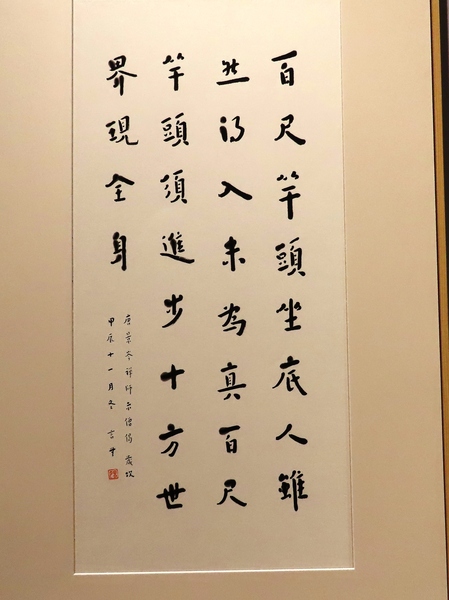 百尺竿頭坐底人雖
然得入未為真百尺
竿頭須進步十方世
界現全身
唐景岑禪師示僧偈 歲次
甲辰十一月冬